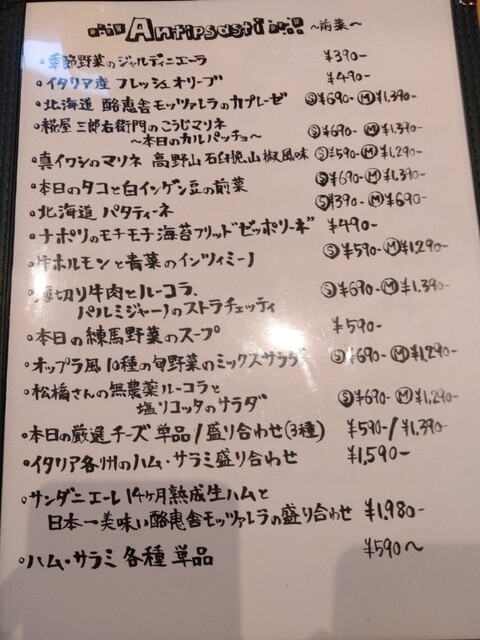 Antipasti ~前菜~
・季節野菜のジャルディニエーラ ¥390-
・イタリア産 フレッシュオリーブ ¥490-
・北海道 酪恵舎モッツァレラのカプレーゼ Ⓢ¥690- Ⓜ¥1,390-
・糀屋 三郎右衛門のこうじマリネ
~本日のカルパッチョ~ Ⓢ¥690- Ⓜ¥1,390-
・真イワシのマリネ 高野山石臼挽山椒風味 Ⓢ¥590- Ⓜ¥1,290-
・本日のタコと白インゲン豆の前菜 Ⓢ¥690- Ⓜ¥1,390-
・北海道 パタティーネ Ⓢ¥390- Ⓜ¥690-
・ナポリのモチモチ海苔フリッド"ゼッポリーネ" ¥490-
・牛ホルモンと青菜のインツィミーノ Ⓢ¥590- Ⓜ¥1,290-
・薄切り牛肉とルーコラ、
パルミジャーノのストラチェッティ Ⓢ¥690- Ⓜ¥1,390-
・本日の練馬野菜のスープ ¥590-
・オップラ風 10種の旬野菜のミックスサラダ Ⓢ¥690- Ⓜ¥1,290-
・松橋さんの無農薬ルーコラと
塩リコッタのサラダ Ⓢ¥690- Ⓜ¥1,290-
・本日の厳選チーズ 単品/盛り合わせ(3種) ¥590-/¥1,390-
・イタリア各州のハム・サラミ盛り合わせ ¥1,590-
・サンダニエーレ14ヶ月熟成生ハムと
日本一美味い酪恵舎モッツァレラの盛り合わせ ¥1,980-
・ハム・サラミ 各種 単品 ¥590~